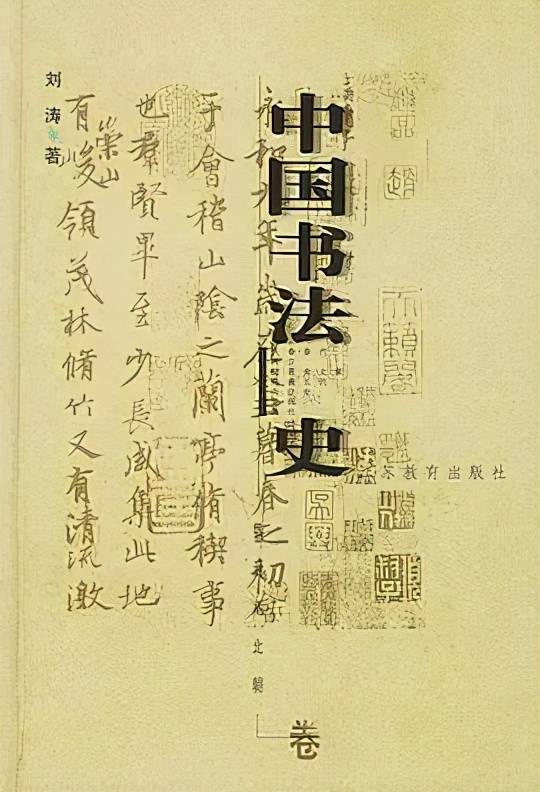 中国书法史
卷
刘涛著
教育出版社
永和九年歲在癸丑暮春之初會
于會稽山陰之蘭亭脩稧事
也羣賢畢至少長咸集此地
有崇山峻領茂林脩竹又有清流激
天籟閣